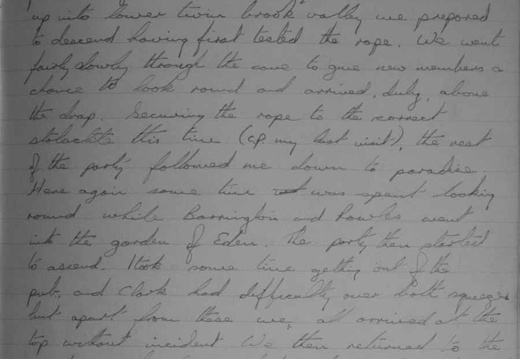 up into lower twin brook valley we prepared
to descend having first tested the rope. We went
fairly slowly through the cave to give new members a
chance to look round and arrived, duly, above
the drop. Securing the rope to the correct
stalactite this time (cp. my last visit!), the rest
of the party followed me down to paradise.
Here again some time was spent looking
round while Barrington and Rawles went
into the garden of Eden. The party then started
to ascend. I took some time getting out of the
pub, and Clark had difficulty over both squeezes
but apart from these we all arrived at the
top without incident. We then returned to the